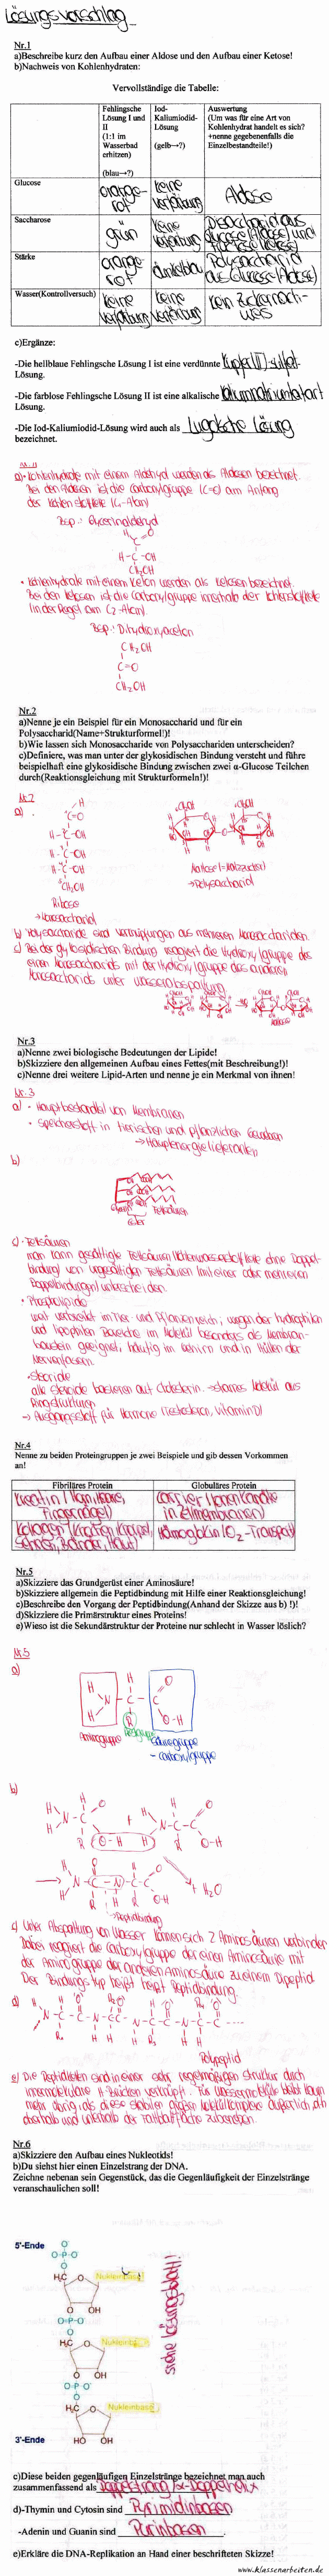 Lösungsvorschlag
Nr.1
a)Beschreibe kurz den Aufbau einer Aldose und den Aufbau einer Ketose!
b)Nachweis von Kohlenhydraten:
Vervollständige die Tabelle:
Fehlingsche Lösung I und II (1:1 im Wasserbad erhitzen) (blau→?)
Iod-Kaliumiodid-Lösung (gelb→?)
Auswertung (Um was für eine Art von Kohlenhydrat handelt es sich? +nenne gegebenenfalls die Einzelbestandteile!)
Glucose orange-rot keine Verfärbung Aldose
Saccharose grün keine Verfärbung Disaccharid aus Glucose (Aldose) und
Stärke orange-rot dunkelblau Polysaccharid aus Glucose (Aldose)
Wasser(Kontrollversuch) keine Verfärbung keine Verfärbung kein Zuckernachweis
c)Ergänze:
-Die hellblaue Fehlingsche Lösung I ist eine verdünnte Kupfer(II)-sulfat-
Lösung.
-Die farblose Fehlingsche Lösung II ist eine alkalische Kaliumnatriumtartrat
Lösung.
-Die Iod-Kaliumiodid-Lösung wird auch als Lugolsche Lösung
bezeichnet.
Nr.1
a)• Kohlenhydrate mit einem Aldehyd werden als Aldosen bezeichnet.
Bei den Aldosen ist die Carbonylgruppe (C=O) am Anfang
der Kohlenstoffkette (C₁-Atom)
Bsp.: Glycerinaldehyd
H O
C
H-C-OH
CH₂OH
• Kohlenhydrate mit einem Keton werden als Ketosen bezeichnet.
Bei den Ketosen ist die Carbonylgruppe innerhalb der Kohlenstoffkette
(in der Regel am C₂-Atom).
Bsp.: Dihydroxyaceton
CH₂OH
C=O
CH₂OH
Nr.2
a)Nenne je ein Beispiel für ein Monosaccharid und für ein
Polysaccharid(Name+Strukturformel!)!
b)Wie lassen sich Monosaccharide von Polysacchariden unterscheiden?
c)Definiere, was man unter der glykosidischen Bindung versteht und führe
beispielhaft eine glykosidische Bindung zwischen zwei α-Glucose Teilchen
durch(Reaktionsgleichung mit Strukturformeln!)!
Nr.2
a)
H
C=O
H-C-OH
H-C-OH
H-C-OH
CH₂OH
Ribose
→Monosaccharid
Maltose (=Malzzucker)
→Polysaccharid
b) Polysaccharide sind Verknüpfungen aus mehreren Monosacchariden.
c) Bei der glykosidischen Bindung reagiert die Hydroxylgruppe des
einen Monosaccharids mit der Hydroxylgruppe des anderen
Monosaccharids unter Wasserabspaltung
Maltose
Nr.3
a)Nenne zwei biologische Bedeutungen der Lipide!
b)Skizziere den allgemeinen Aufbau eines Fettes(mit Beschreibung!)!
c)Nenne drei weitere Lipid-Arten und nenne je ein Merkmal von ihnen!
Nr.3
a) • Hauptbestandteil von Membranen
• Speicherstoff in tierischen und pflanzlichen Geweben
→Hauptenergielieferanten
b)
Glycerin Fettsäuren
Ester
c) •Fettsäuren
man kann gesättigte Fettsäuren (Kohlenwasserstoffkette ohne Doppel-
bindung) von ungesättigten Fettsäuren (mit einer oder mehreren
Doppelbindungen) unterscheiden.
• Phospholipide
weit verbreitet im Tier und Pflanzenreich; wegen der hydrophilen
und lipophilen Bereiche im Molekül besonders als Membran-
baustein geeignet; häufig im Gehirn und in Hüllen der
Nervenfasern.
•Steroide
alle Steroide basieren auf Cholesterin. →starres Molekül aus
Ringstrukturen
→ Ausgangsstoff für Hormone (Testosteron, Vitamin D)
Nr.4
Nenne zu beiden Proteingruppen je zwei Beispiele und gib dessen Vorkommen
an!
Fibrilläres Protein Globuläres Protein
Keratin (Horn, Haare, Fingernägel) Carrier (Ionenkanäle in Zellmembranen)
Kollagen (Knochen, Knorpel, Sehnen, Bänder, Haut) Hämoglobin (O₂-Transport)
Nr.5
a)Skizziere das Grundgerüst einer Aminosäure!
b)Skizziere allgemein die Peptidbindung mit Hilfe einer Reaktionsgleichung!
c)Beschreibe den Vorgang der Peptidbindung(Anhand der Skizze aus b) !)!
d)Skizziere die Primärstruktur eines Proteins!
e)Wieso ist die Sekundärstruktur der Proteine nur schlecht in Wasser löslich?
Nr.5
a)
Aminogruppe Restgruppe Säuregruppe
- Carboxylgruppe
b)
+ H₂O
→Peptidbindung
c) Unter Abspaltung von Wasser können sich 2 Aminosäuren verbinden
Dabei reagiert die Carboxylgruppe der einen Aminosäure mit
der Aminogruppe der anderen Aminosäure zu einem Dipeptid
Der Bindungstyp heißt heißt Peptidbindung.
d)
Polypeptid
e) Die Peptidketten sind in einer sehr regelmäßigen Struktur durch
intermolekulare H-Brücken verknüpft. Für Wassermoleküle bleibt kaum
mehr übrig, als diese stabilen Molekülkomplexe äußerlich, oberhalb und unterhalb der Faltblattfläche
Nr.6
a)Skizziere den Aufbau eines Nukleotids!
b)Du siehst hier einen Einzelstrang der DNA.
Zeichne nebenan sein Gegenstück, das die Gegenläufigkeit der Einzelstränge
veranschaulichen soll!
5'-Ende
Nukleinbase
Nukleinbase
Nukleinbase
3'-Ende
siehe Lösungsblatt!
c)Diese beiden gegenläufigen Einzelstränge bezeichnet man auch
zusammenfassend als Doppelstrang/α-Doppelhelix
d)-Thymin und Cytosin sind Pyrimidinbasen.
-Adenin und Guanin sind Purinbasen.
e)Erkläre die DNA-Replikation an Haand einer beschrifteten Skizze!
www.klassenarbeiten.de